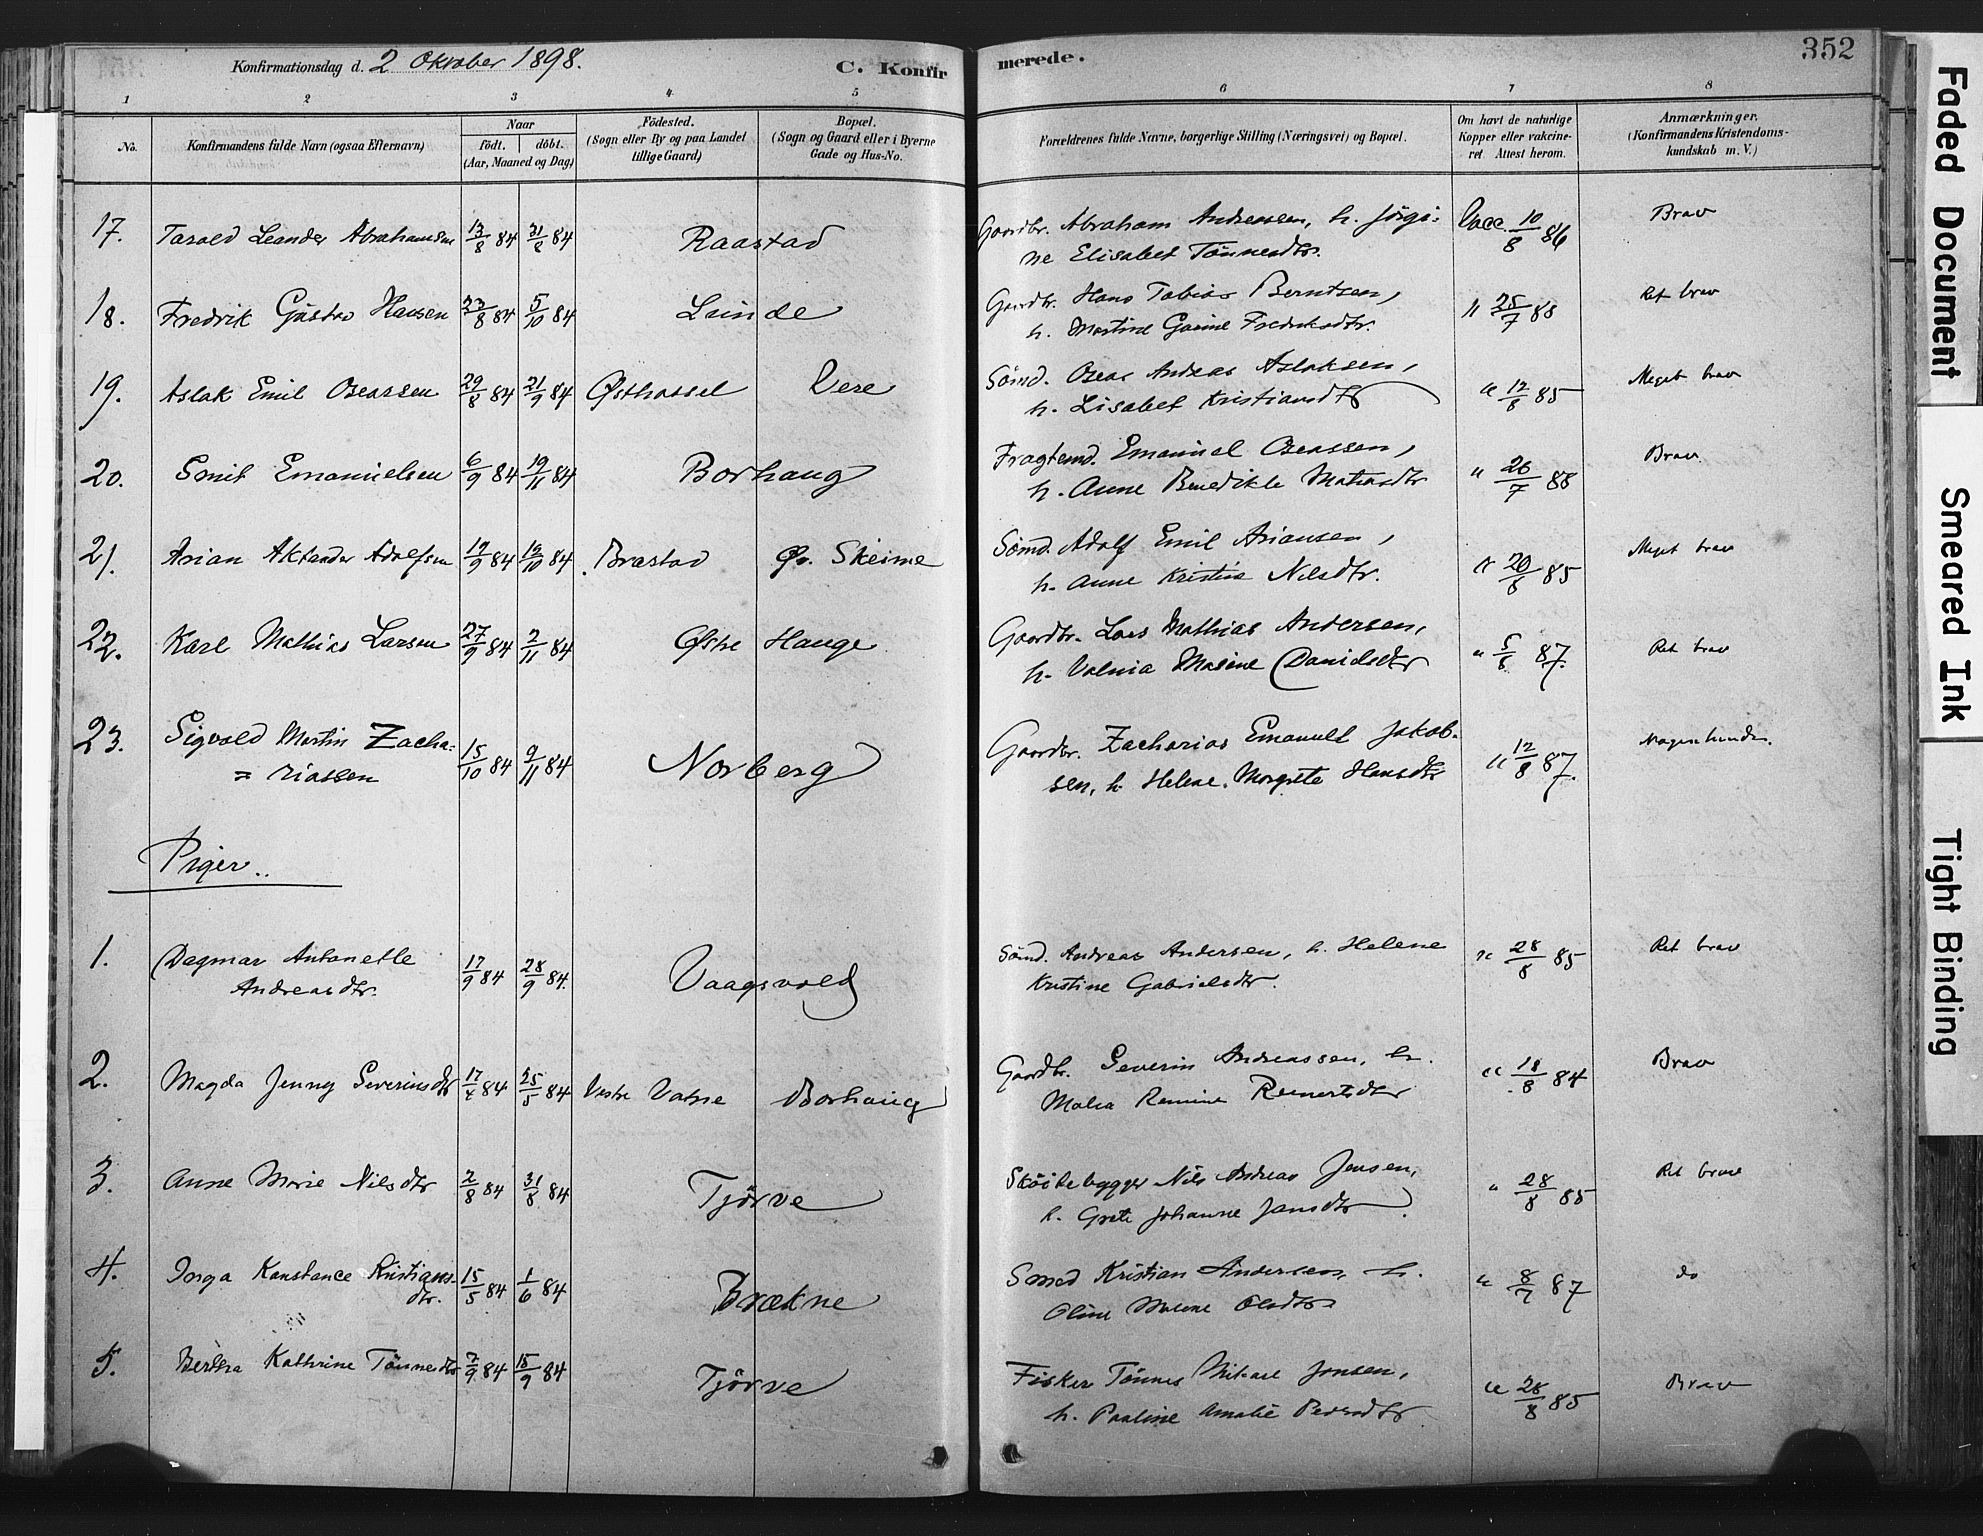 352
Konfirmationsdag d. 2 Oktober 1898.
C. Konfirmerede.
1 2 3 4 5 6 7 8
No.
Konfirmandens fulde Navn (ogsaa Efternavn)
Naar
födt. döbt.
(Aar, Maaned og Dag)
Födested.
(Sogn eller By og paa Landet
tillige Gaard)
Bopæl.
(Sogn og Gaard eller i Byerne
Gade og Hus-No.
Forældrenes fulde Navne, borgerlige Stilling (Næringsvei) og Bopæl.
Om havt de naturlige
Kopper eller vakcine-
ret. Attest herom.
Anmærkninger.
(Konfirmandens Kristendoms-
kundskab m. V.)
17. Tarald Leander Abrahamsen 13/8 84 31/8 84 Raastad Gaardbr. Abraham Andreassen, h. Jörgi- Vacc. 10/8 86 Brav
ne Elisabet Tönnesdtr.
18. Fredrik Gustav Hansen 23/8 84 5/10 84 Lunde Gaardbr. Hans Tobias Berntsen, " 25/7 88 Ret brav
h. Martine Gurine Fredriksdtr.
19. Aslak Emil Oseassen 29/8 84 21/9 84 Østhassel Vere Sömd. Oseas Andreas Aslaksen, " 12/8 85 Meget brav
h. Lisabet Kristiansdtr
20. Emil Emanuelsen 6/9 84 19/11 84 Borhaug Fragtemd. Emanuel Oseassen, " 26/7 88 Brav.
h. Anne Benedikte Matiasdtr
21. Arian Aktander Adolfsen 19/9 84 12/10 84 Brastad Ør. Skeime Sömd. Adolf Emil Ariansen, " 20/8 85 Meget brav
h. Anne Kristine Nilsdtr.
22. Karl Mathias Larsen 27/9 84 2/11 84 Østre Hauge Gaardbr. Lars Mathias Andersen, " 5/8 87. Ret brav
h. Valnia Malene Danielsdtr
23. Sigvald Martin Zacha= 15/10 84 9/11 84 Norberg Gaardbr. Zacharias Emanuel Jakob- " 12/8 87.
= riassen sen, h. Helene Margrete Hansdtr
Piger..
1. Dagmar Antonette 17/9 84 28/9 84. Vaagsvold Sömd. Andreas Andersen, h. Helene " 28/8 85 Ret brav
Andreasdtr. Kristine Gabrielsdtr.
2. Magda Jenny Severinsdtr 17/4 84 25/5 84 Vestre Vatne Borhaug Gaardbr. Severin Andreassen, h. " 18/8 84 Brav
Malea Ramine Reinertsdtr
3. Anne Marie Nilsdtr 2/8 84 31/8 84 Tjörve Sköitebygger Nils Andreas Jensen, " 28/8 85 Ret brav
h. Grete Johanne Jansdtr.
4. Inga Konstance Kristians- 15/5 84 1/6 84 Brækne Smed Kristian Andersen, h. " 8/7 87 do
dtr. Oline Malene Olsdtr
5. Bertha Kathrine Tönnesdtr 7/9 84 15/9 84 Tjörve Fisker Tönnes Mikael Jonsen, " 28/8 85 Brav
h. Pauline Amalie Pedersdtr
Faded Document
Smeared Ink
Tight Binding